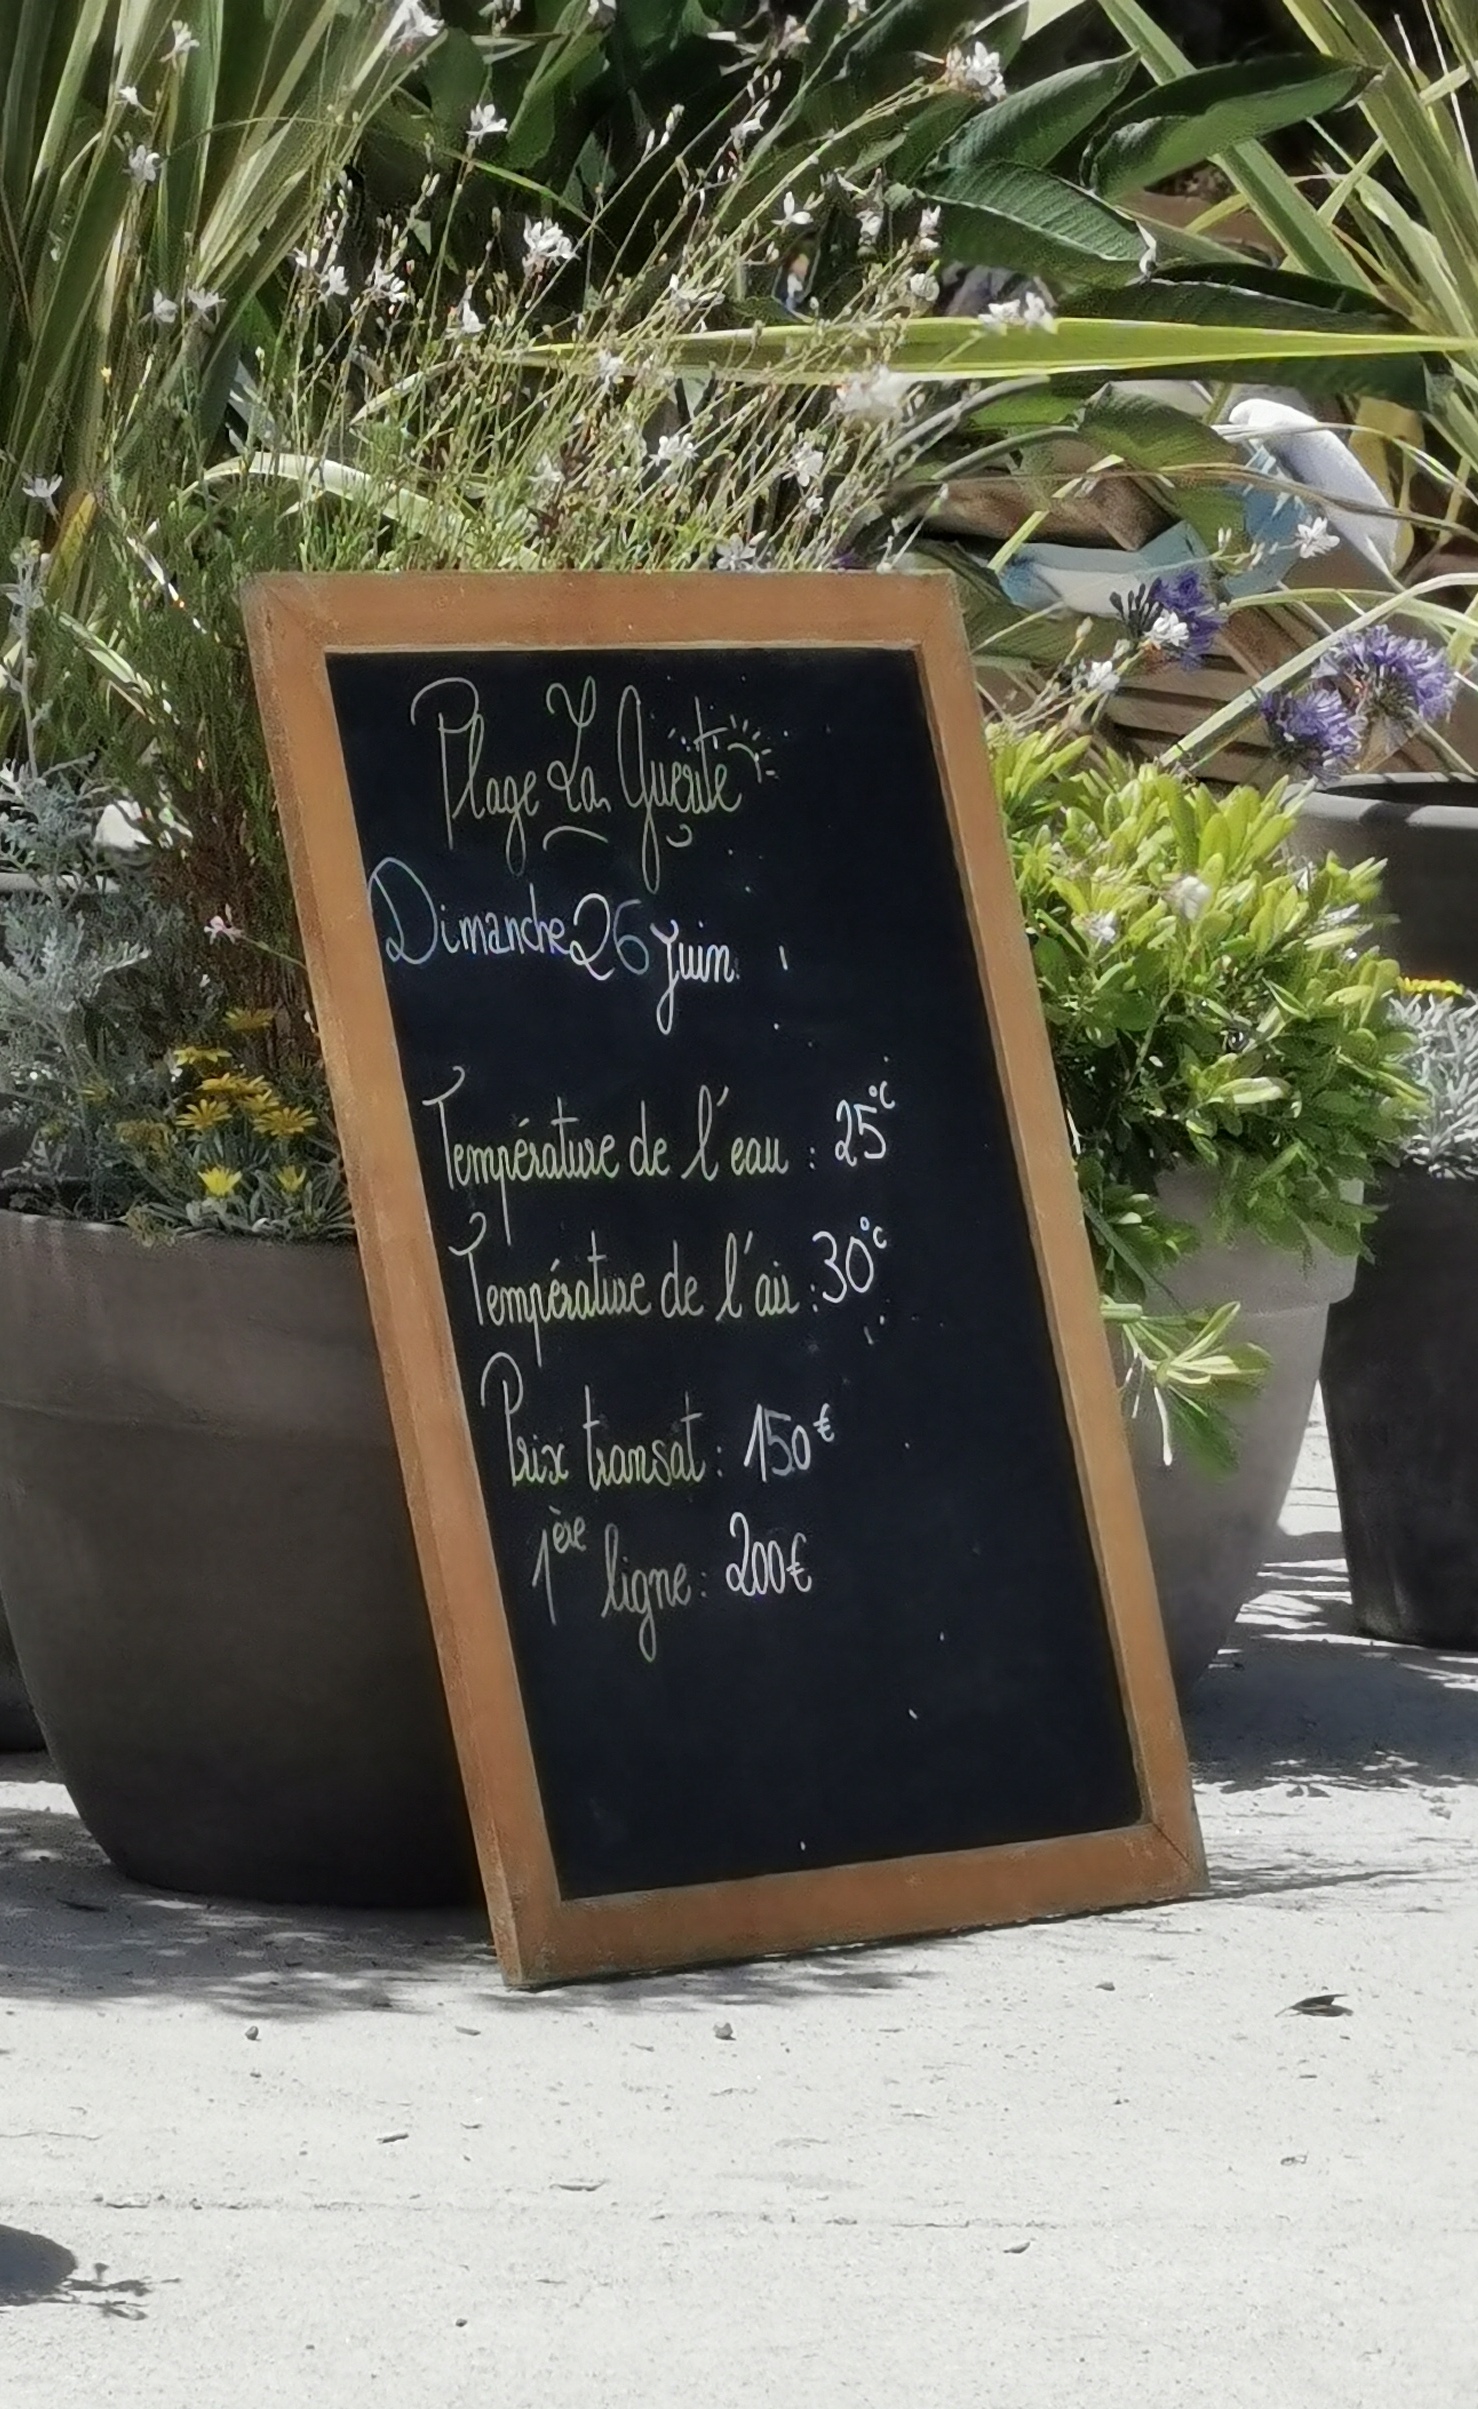 Plage La Guérite
Dimanche 26 Juin
Température de l'eau : 25°C
Température de l'air : 30°C
Prix transat : 150€
1ère ligne : 200€